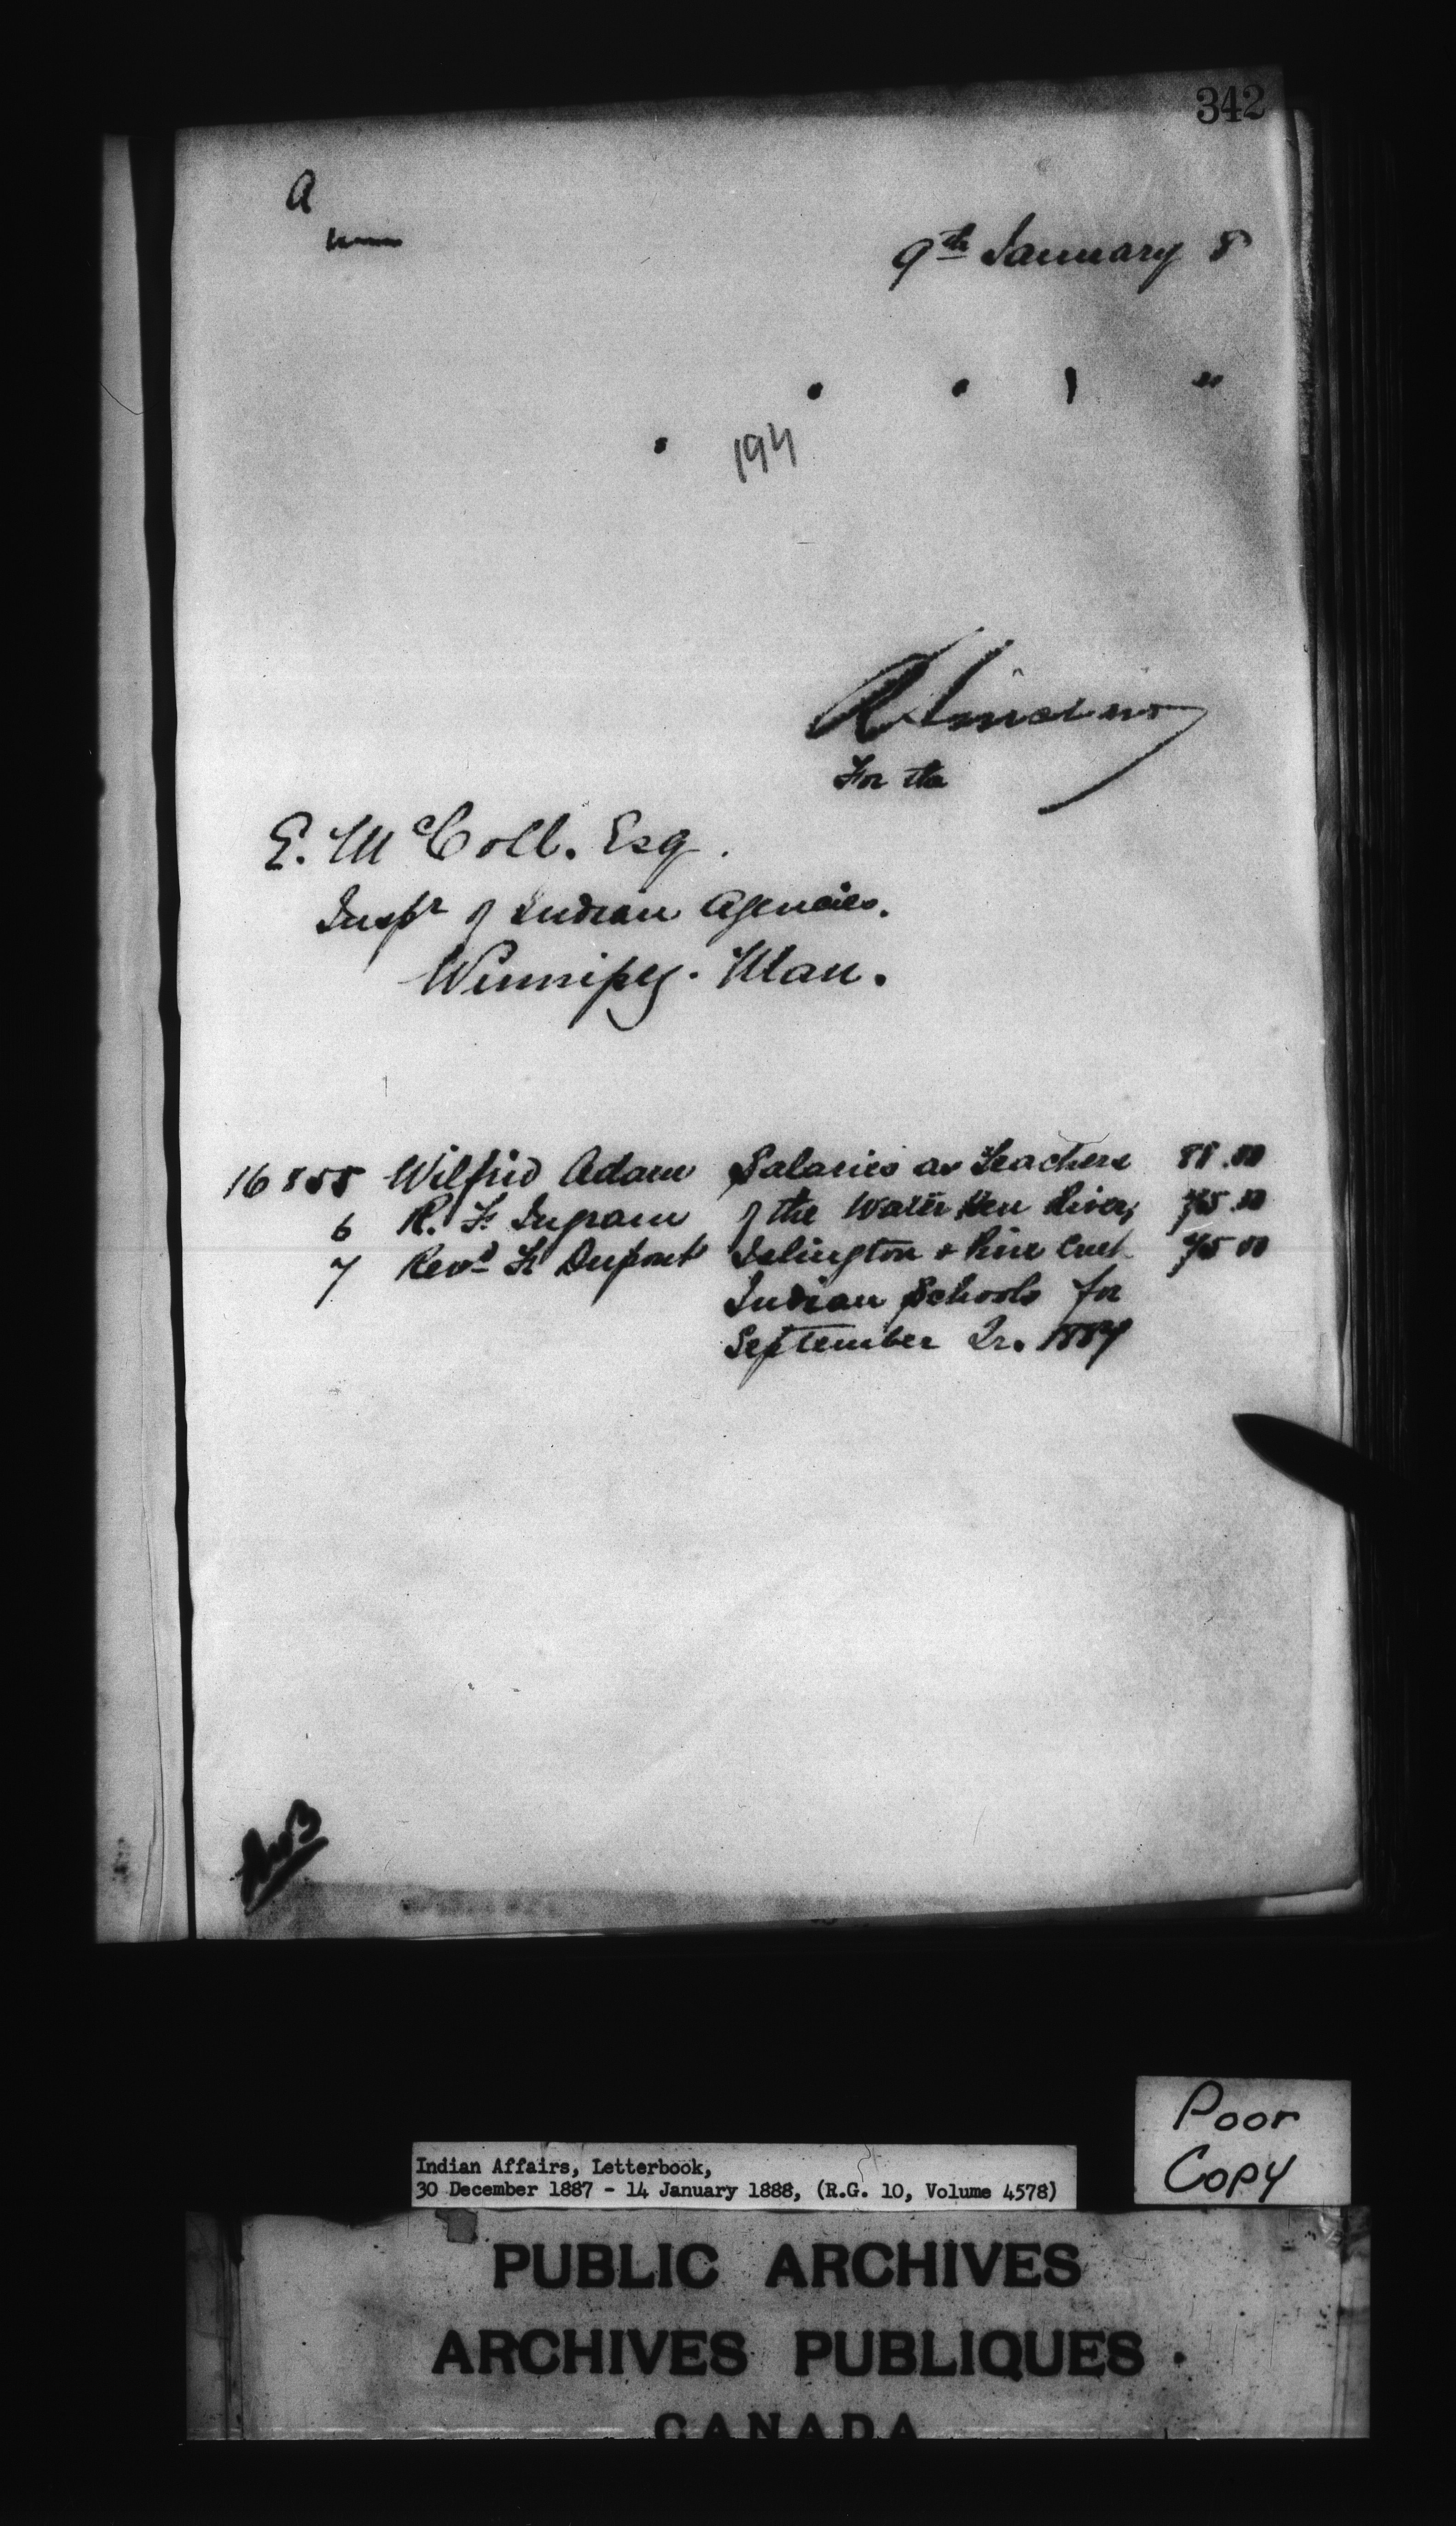 342
a
9th January 8
194
For the
E. McColl. Esq.
Inspr of Indian Agencies.
Winnipeg. Man.
16855 Wilfrid Adam Salaries as Teachers 88.00
6 R. F. Ingram of the Water Hen River, 75.00
7 Revd Fr Dupont Islington & Pine Creek 75 00
Indian Schools for
September Qr. 1887
Poor
Copy
Indian Affairs, Letterbook,
30 December 1887 - 14 January 1888, (R.G. 10, Volume 4578)
PUBLIC ARCHIVES
ARCHIVES PUBLIQUES
CANADA